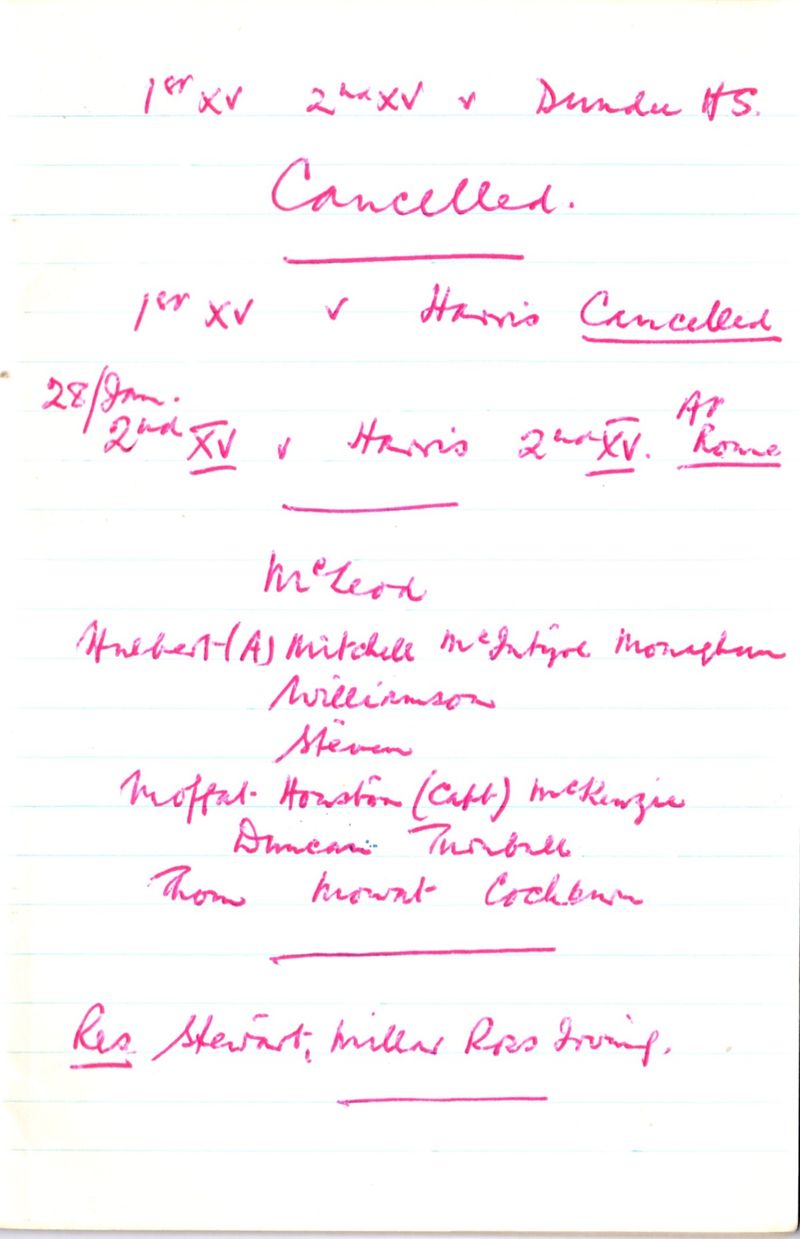 1st XV 2nd XV v Dundee HS.
Cancelled.
1st XV v Harris Cancelled
28/Jan.
2nd XV v Harris 2nd XV. At Rome
McLeod
Hulbert (A) Mitchell McIntyre Monaghan
Williamson
Steven
Moffat Houston (Capt) McKenzie
Duncan Turnbull
Thom Mowat Cockburn
Res Stewart, Millar Ross Irving.